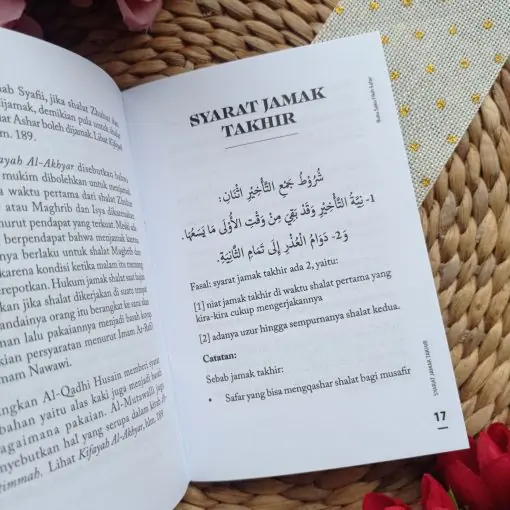 ab Syafii, jika shalat Zhuhur dan
dijamak, demikian pula untuk shalat
iar Ashar boleh dijamak. Lihat Kifayah
m. 189.
ayah Al-Akhyar disebutkan bahwa
mukim dibolehkan untuk menjamak
a waktu pertama dari shalat Zhuhur
atau Maghrib dan Isya dikarenakan
nurut pendapat yang terkuat. Meski ada
berpendapat bahwa menjamak karena
nya berlaku untuk shalat Maghrib dan
karena kondisi ketika malam itu memang
repotkan. Hukum jamak shalat saat hujan
kan jika shalat dikerjakan di suatu tempat
andainya orang itu berangkat ke sana akan
nan lalu pakaiannya menjadi basah kuyup.
kian persyaratan menurut Imam Ar-Rafi'i
mam Nawawi.
ngkan Al-Qadhi Husain memberi syarat
bahan yaitu alas kaki juga menjadi basah
bagaimana pakaian. Al-Mutawalli juga
nyebutkan hal yang serupa dalam kitab At-
timmah. Lihat Kifayah Al-Akhyar, hlm. 189
SYARAT JAMAK
TAKHIR
شُرُوْطُ جَمْعِ التَّأْخِيْرِ اثْنَانِ:
1- نِيَّةُ التَّأْخِيْرِ وَقَدْ بَقِيَ مِنْ وَقْتِ الْأُوْلَى مَا يَسَعُهَا.
وَ2- دَوَامُ الْعُذْرِ إِلَى تَمَامِ الثَّانِيَةِ.
Fasal: syarat jamak takhir ada 2, yaitu:
[1] niat jamak takhir di waktu shalat pertama yang
kira-kira cukup mengerjakannya
[2] adanya uzur hingga sempurnanya shalat kedua.
Catatan:
Sebab jamak takhir:
• Safar yang bisa mengqashar shalat bagi musafir
SYARAT JAMAK TAKHIR
17